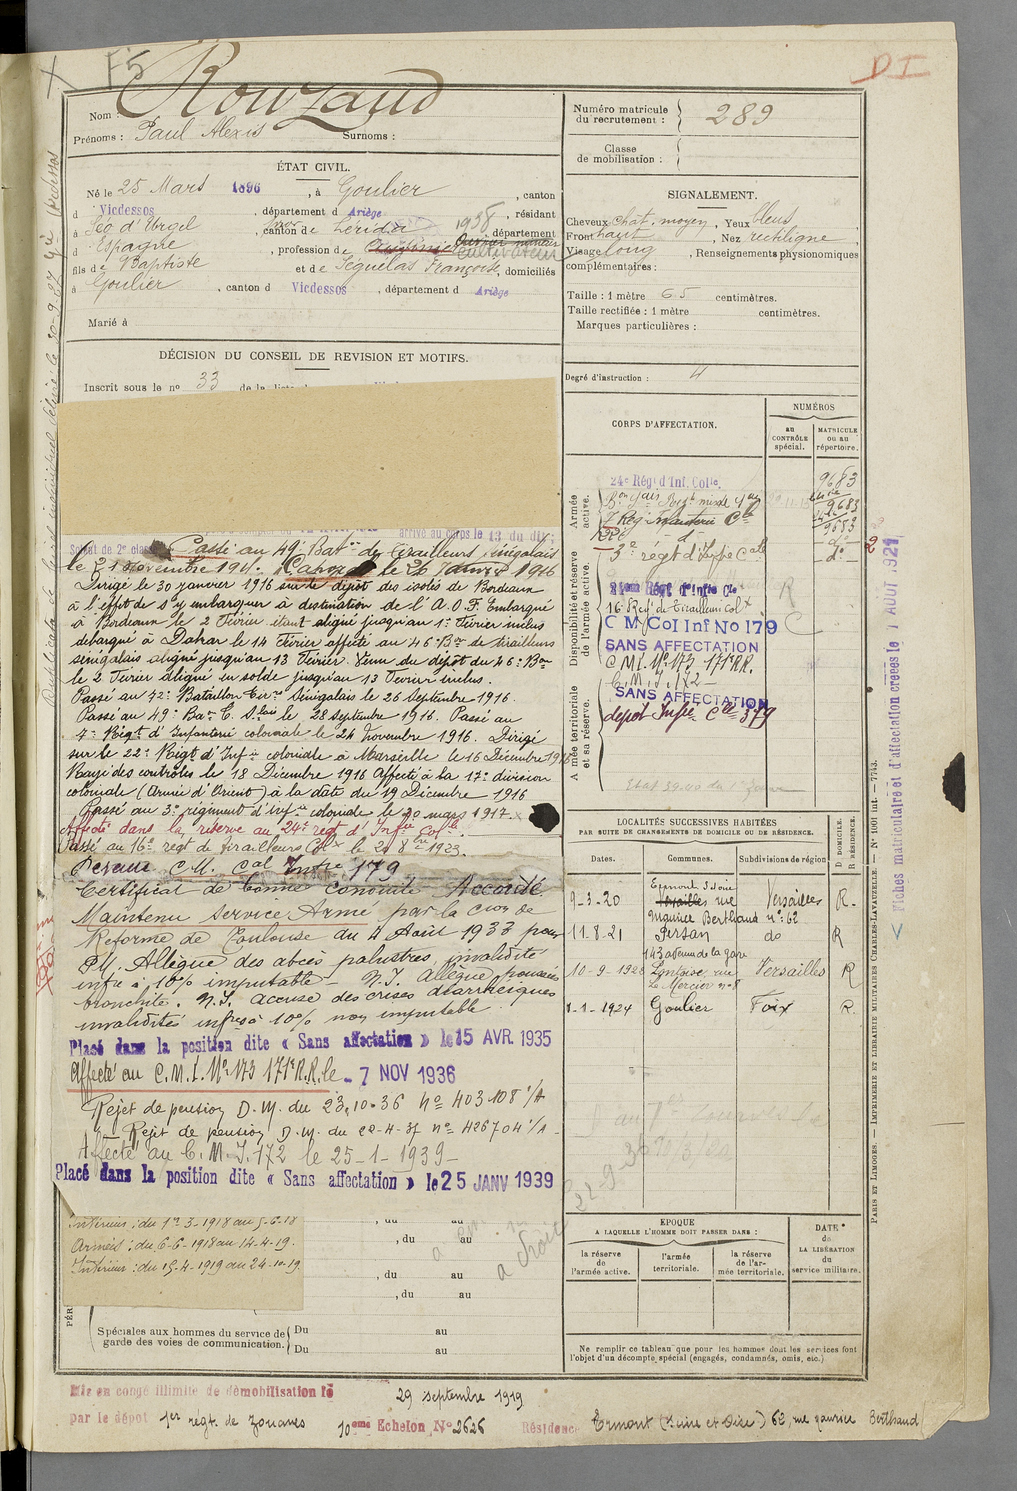 F5
D I
Nom : Rouzaud
Prénoms : Paul Alexis Surnoms :
ÉTAT CIVIL.
Né le 25 Mars 1896, à Goulier, canton
d Vicdessos, département d Ariège, résidant
à Séo d'Urgel, canton de Lérida 1938, département
d Espagne, profession de cultivateur
fils de Baptiste et de Séguélas Françoise, domiciliés
à Goulier, canton d Vicdessos, département d Ariège
Marié à
DÉCISION DU CONSEIL DE REVISION ET MOTIFS.
Inscrit sous le no 33 de la liste
arrivé au corps le 13 du dit ;
Soldat de 2e classe Passé au 49e Baton de Tirailleurs sénégalais
le 21 novembre 191. Caporal le 26 Janvier 1916
Dirigé le 30 janvier 1916 sur le dépôt des isolés de Bordeaux
à l'effet de s'y embarquer à destination de l'A.O.F. Embarqué
à Bordeaux le 2 Février étant aligné jusqu'au 1er Février inclus
débarqué à Dakar le 14 Février affecté au 46e Bon de tirailleurs
sénégalais aligné jusqu'au 13 Février. Venu du dépôt du 46e Bon
le 2 Février aligné en solde jusqu'au 13 Février inclus.
Passé au 72e Bataillon Ter Sénégalais le 26 Septembre 1916.
Passé au 49e Bon T. Slais le 28 Septembre 1916. Passé au
4e Régt d'Infanterie coloniale le 24 Novembre 1916. Dirigé
sur le 22e Régt d'Infie coloniale à Marseille le 16 Décembre 1916
Rayé des contrôles le 18 Décembre 1916 Affecté à la 17e division
coloniale (Armée d'Orient) à la date du 19 Décembre 1916
Passé au 3e régiment d'Infie coloniale le 20 mars 1917.
Affecté dans la réserve au 24e régt d'Infie Colle
Passé au 16e régt de tirailleurs Colx le 21 8bre 1923.
Devenu C.M. Cal Infie 179
Certificat de bonne conduite Accordé
Maintenu service Armé par la Cion de
Réforme de Toulouse du 4 Août 1933 pour
P.M. Allègue des abcès palustres, invalidité
infre à 10% imputable - N.I. Allègue poussées
bronchite. N.I. accuse des crises diarrhéiques
invalidités infres à 10% non imputable
Placé dans la position dite « Sans affectation » le 15 AVR. 1935
Affecté au C.M.I. No 173 171e R.R. le - 7 NOV 1936
Rejet de pension D.M. du 23.10.36 No 403108 1/A
Rejet de pension D.M. du 22-4-37 no 426704 1/A -
Affecté au C.M.I. 172 le 25-1-1939-
Placé dans la position dite « Sans affectation » le 25 JANV 1939
Intérieur : du 1er-3-1918 au 5-6-18
Armées : du 6-6-1918 au 14-4-19.
Intérieur : du 15-4-1919 au 24-10-19
, du au
, du au
, du au
, du au
Spéciales aux hommes du service de garde des voies de communication. { Du au
Du au
Numéro matricule du recrutement : 289
Classe de mobilisation :
SIGNALEMENT.
Cheveux chat. moyen, Yeux bleus
Front haut, Nez rectiligne
Visage long, Renseignements physionomiques
complémentaires :
Taille : 1 mètre 65 centimètres.
Taille rectifiée : 1 mètre centimètres.
Marques particulières :
Degré d'instruction : 4
CORPS D'AFFECTATION.
NUMÉROS
au CONTRÔLE spécial.
MATRICULE ou au répertoire.
Armée active.
Disponibilité et réserve de l'armée active.
Armée territoriale et sa réserve.
24e Régt d'Inf. Colle. 9683
9683
9683
3e régt d'Infie Cale do
21ème Régt d'Infie Cle
16e Régt de Tirailleurs Colx
C M Col Inf No 179
SANS AFFECTATION
C.M.I. No 173 171e R.R.
C.M.I. 172
SANS AFFECTATION
dépôt Infie Clle 379
LOCALITÉS SUCCESSIVES HABITÉES
PAR SUITE DE CHANGEMENTS DE DOMICILE OU DE RÉSIDENCE.
Dates. Communes. Subdivisions de région D DOMICILE. R RÉSIDENCE.
9-3-20 Ermont S.Oise rue Maurice Berthaud no 62 Versailles R.
11.8.21 Persan do R
143 avenue de la gare
10-9-192 Pontoise, rue Le Mercier no 8 Versailles R
1-1-1924 Goulier Foix R.
EPOQUE
A LAQUELLE L'HOMME DOIT PASSER DANS :
la réserve de l'armée active.
l'armée territoriale.
la réserve de l'armée territoriale.
DATE de LA LIBÉRATION du service militaire.
Ne remplir ce tableau que pour les hommes dont les services font
l'objet d'un décompte spécial (engagés, condamnés, omis, etc.)
Mis en congé illimité de démobilisation le 29 septembre 1919
par le dépôt 1er régt. de Zouaves 10eme Echelon, No 2626 Résidence Ermont (Seine et Oise) 62, rue Maurice Berthaud
Fiches matriculaire et d'affectation créées le 1 AOUT 1921
PARIS ET LIMOGES. — IMPRIMERIE ET LIBRAIRIE MILITAIRES CHARLES-LAVAUZELLE. — No 1001 int. — 7743.